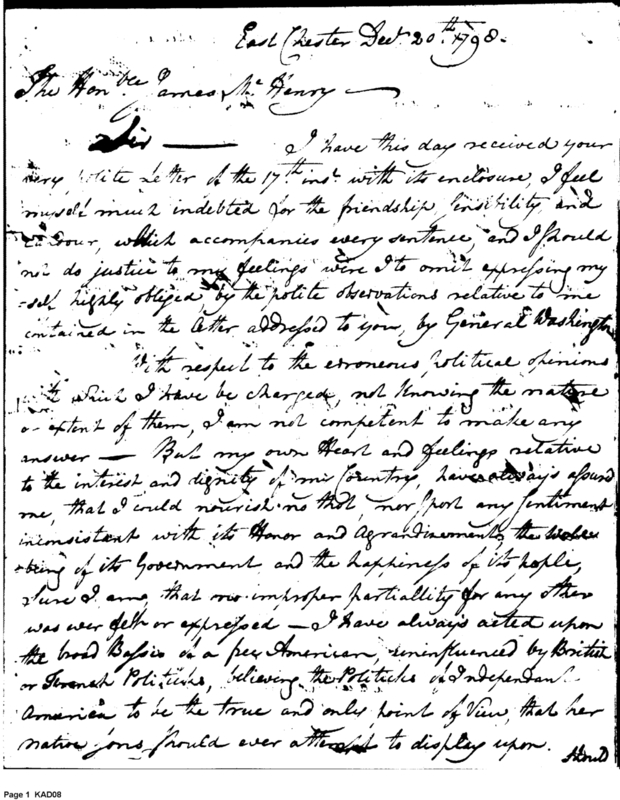 East Chester Decr. 20th. 1798.
The Honble James Mc Henry
Sir — I have this day received your
very polite Letter of the 17th inst. with its enclosure, I feel
myself much indebted for the friendship, Sensibility, and
which accompanies every sentence, and I should
not do justice to my feelings were I to omit expressing my
-self highly obliged by the polite observations relative to me
contained in the letter addressed to you, by General Washington
With respect to the erroneous political opinions
with which I have be charged, not knowing the nature
or extent of them, I am not competent to make any
answer — But my own Heart and feelings relative
to the interest and dignity of my Country, have always assured
me, that I could nourish no that, nor sport any Sentiment
inconsistent with its Honor and Agrandizement, the
-being of its Government and the happiness of its people,
Sure I am, that no improper partiallity for any other
was ever felt or expressed — I have always acted upon
the broad Bassis of a free American, uninfluenced by British
or French Politicks, believing the Politicks of Independant
America to be the true and only point of View, that her
native sons should ever attempt to display upon.
Page 1 KAD08